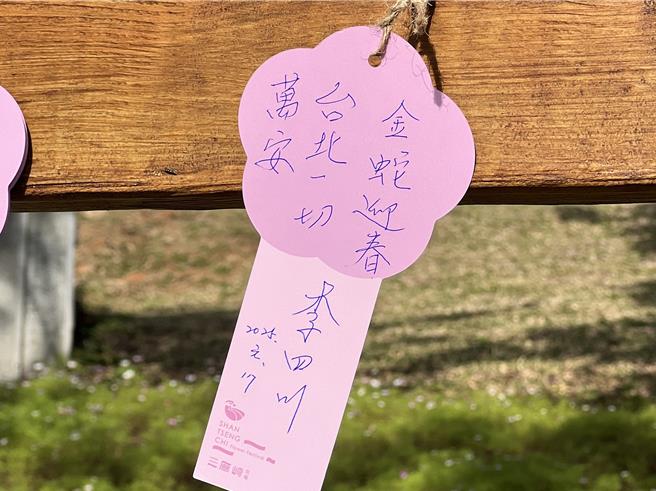 金蛇迎春
台北一切
萬安
李四川
2025.
元.
17
SHAN
TSENG
CHI Flower Festival
三層崎